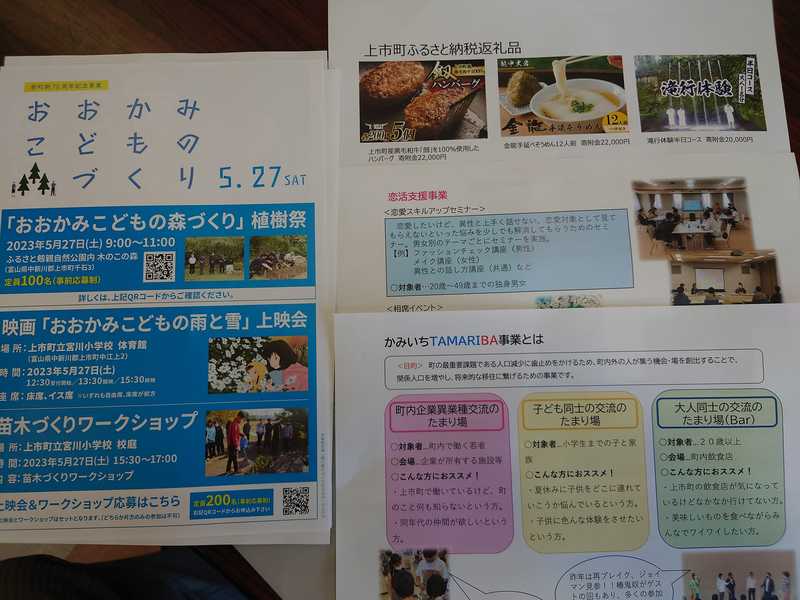 おおかみ
こどもの
づくり 5.27 SAT
「おおかみこどもの森づくり」植樹祭
2023年5月27日(土) 9:00~11:00
ふるさと剱親自然公園内 木のこの森
(富山県中新川郡上市町千石3)
定員100名(事前応募制)
詳しくは、上記QRコードからご確認ください。
映画「おおかみこどもの雨と雪」上映会
場所:上市町立宮川小学校 体育館
(富山県中新川郡上市町中江上2)
時間:2023年5月27日(土)
12:30受付開始/13:30開場/15:30終了
座席:床席、イス席 ※いずれも自由席、床席が前方
苗木づくりワークショップ
場所:上市町立宮川小学校 校庭
時間:2023年5月27日(土) 15:30~17:00
内容:苗木づくりワークショップ
上映会&ワークショップ応募はこちら
定員200名(事前応募制)
右記QRコードからお申込み下さい
上市町ふるさと納税返礼品
釼
ハンバーグ
200g 5個
上市町産黒毛和牛「釼」を100%使用した
ハンバーグ 寄附金22,000円
12人前
金龍手延べそうめん12人前 寄附金22,000円
半日コース
滝行体験
滝行体験半日コース 寄附金20,000円
恋活支援事業
<恋愛スキルアップセミナー>
恋愛したいけど、異性と上手く話せない、恋愛対象として見て
もらえないといった悩みを少しでも解消してもらうためのセミ
ナー。男女別のテーマごとにセミナーを実施。
【例】ファッションチェック講座(男性)
メイク講座(女性)
異性との話し方講座(共通)など
○対象者…20歳~49歳までの独身男女
<相席イベント>
かみいちTAMARIBA事業とは
<目的> 町の最重要課題である人口減少に歯止めをかけるため、町内外の人が集う機会・場を創出することで、
関係人口を増やし、将来的な移住に繋げるための事業です。
町内企業異業種交流の
たまり場
○対象者…町内で働く若者
○会場…企業が所有する施設等
○こんな方におススメ!
・上市町で働いているけど、町
のこと何も知らないという方。
・同年代の仲間が欲しいという
方。
子ども同士の交流の
たまり場
○対象者…小学生までの子と家
族
○こんな方におススメ!
・夏休みに子供をどこに連れて
いこうか悩んでいるという方。
・子供に色んな体験をさせたい
という方。
大人同士の交流の
たまり場(Bar)
○対象者…20歳以上
○会場…町内飲食店
○こんな方におススメ!
・上市町の飲食店が気になって
いるけどなかなか行けてない方。
・美味しいものを食べながらみ
んなでワイワイしたい方。
昨年は再ブレイク、ジョイ
マン見参!!椿鬼奴がゲス
トの回もあり、多くの参加